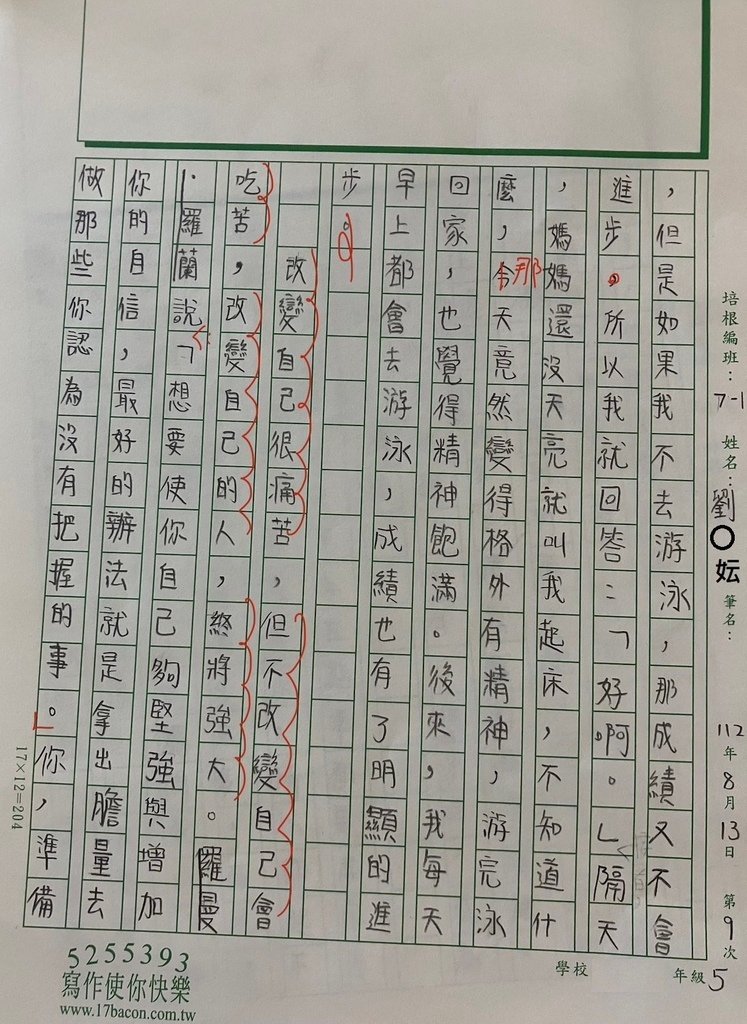 ，但是如果我不去游泳，那成績又不會
進步。所以我就回答：「好啊。」隔天
，媽媽還沒天亮就叫我起床，不知道什
麼，那天竟然變得格外有精神，游完泳
回家，也覺得精神飽滿。後來，我每天
早上都會去游泳，成績也有了明顯的進
步。
改變自己很痛苦，但不改變自己會
吃苦，改變自己的人，終將強大。羅曼
．羅蘭說：「想要使你自己夠堅強與增加
你的自信，最好的辦法就是拿出膽量去
做那些你認為沒有把握的事。」你，準備
培根編班：7-1 姓名：劉○妘 筆名： 112年8月13日 第9次
學校 年級5
17×12=204
5255393
寫作使你快樂
www.17bacon.com.tw